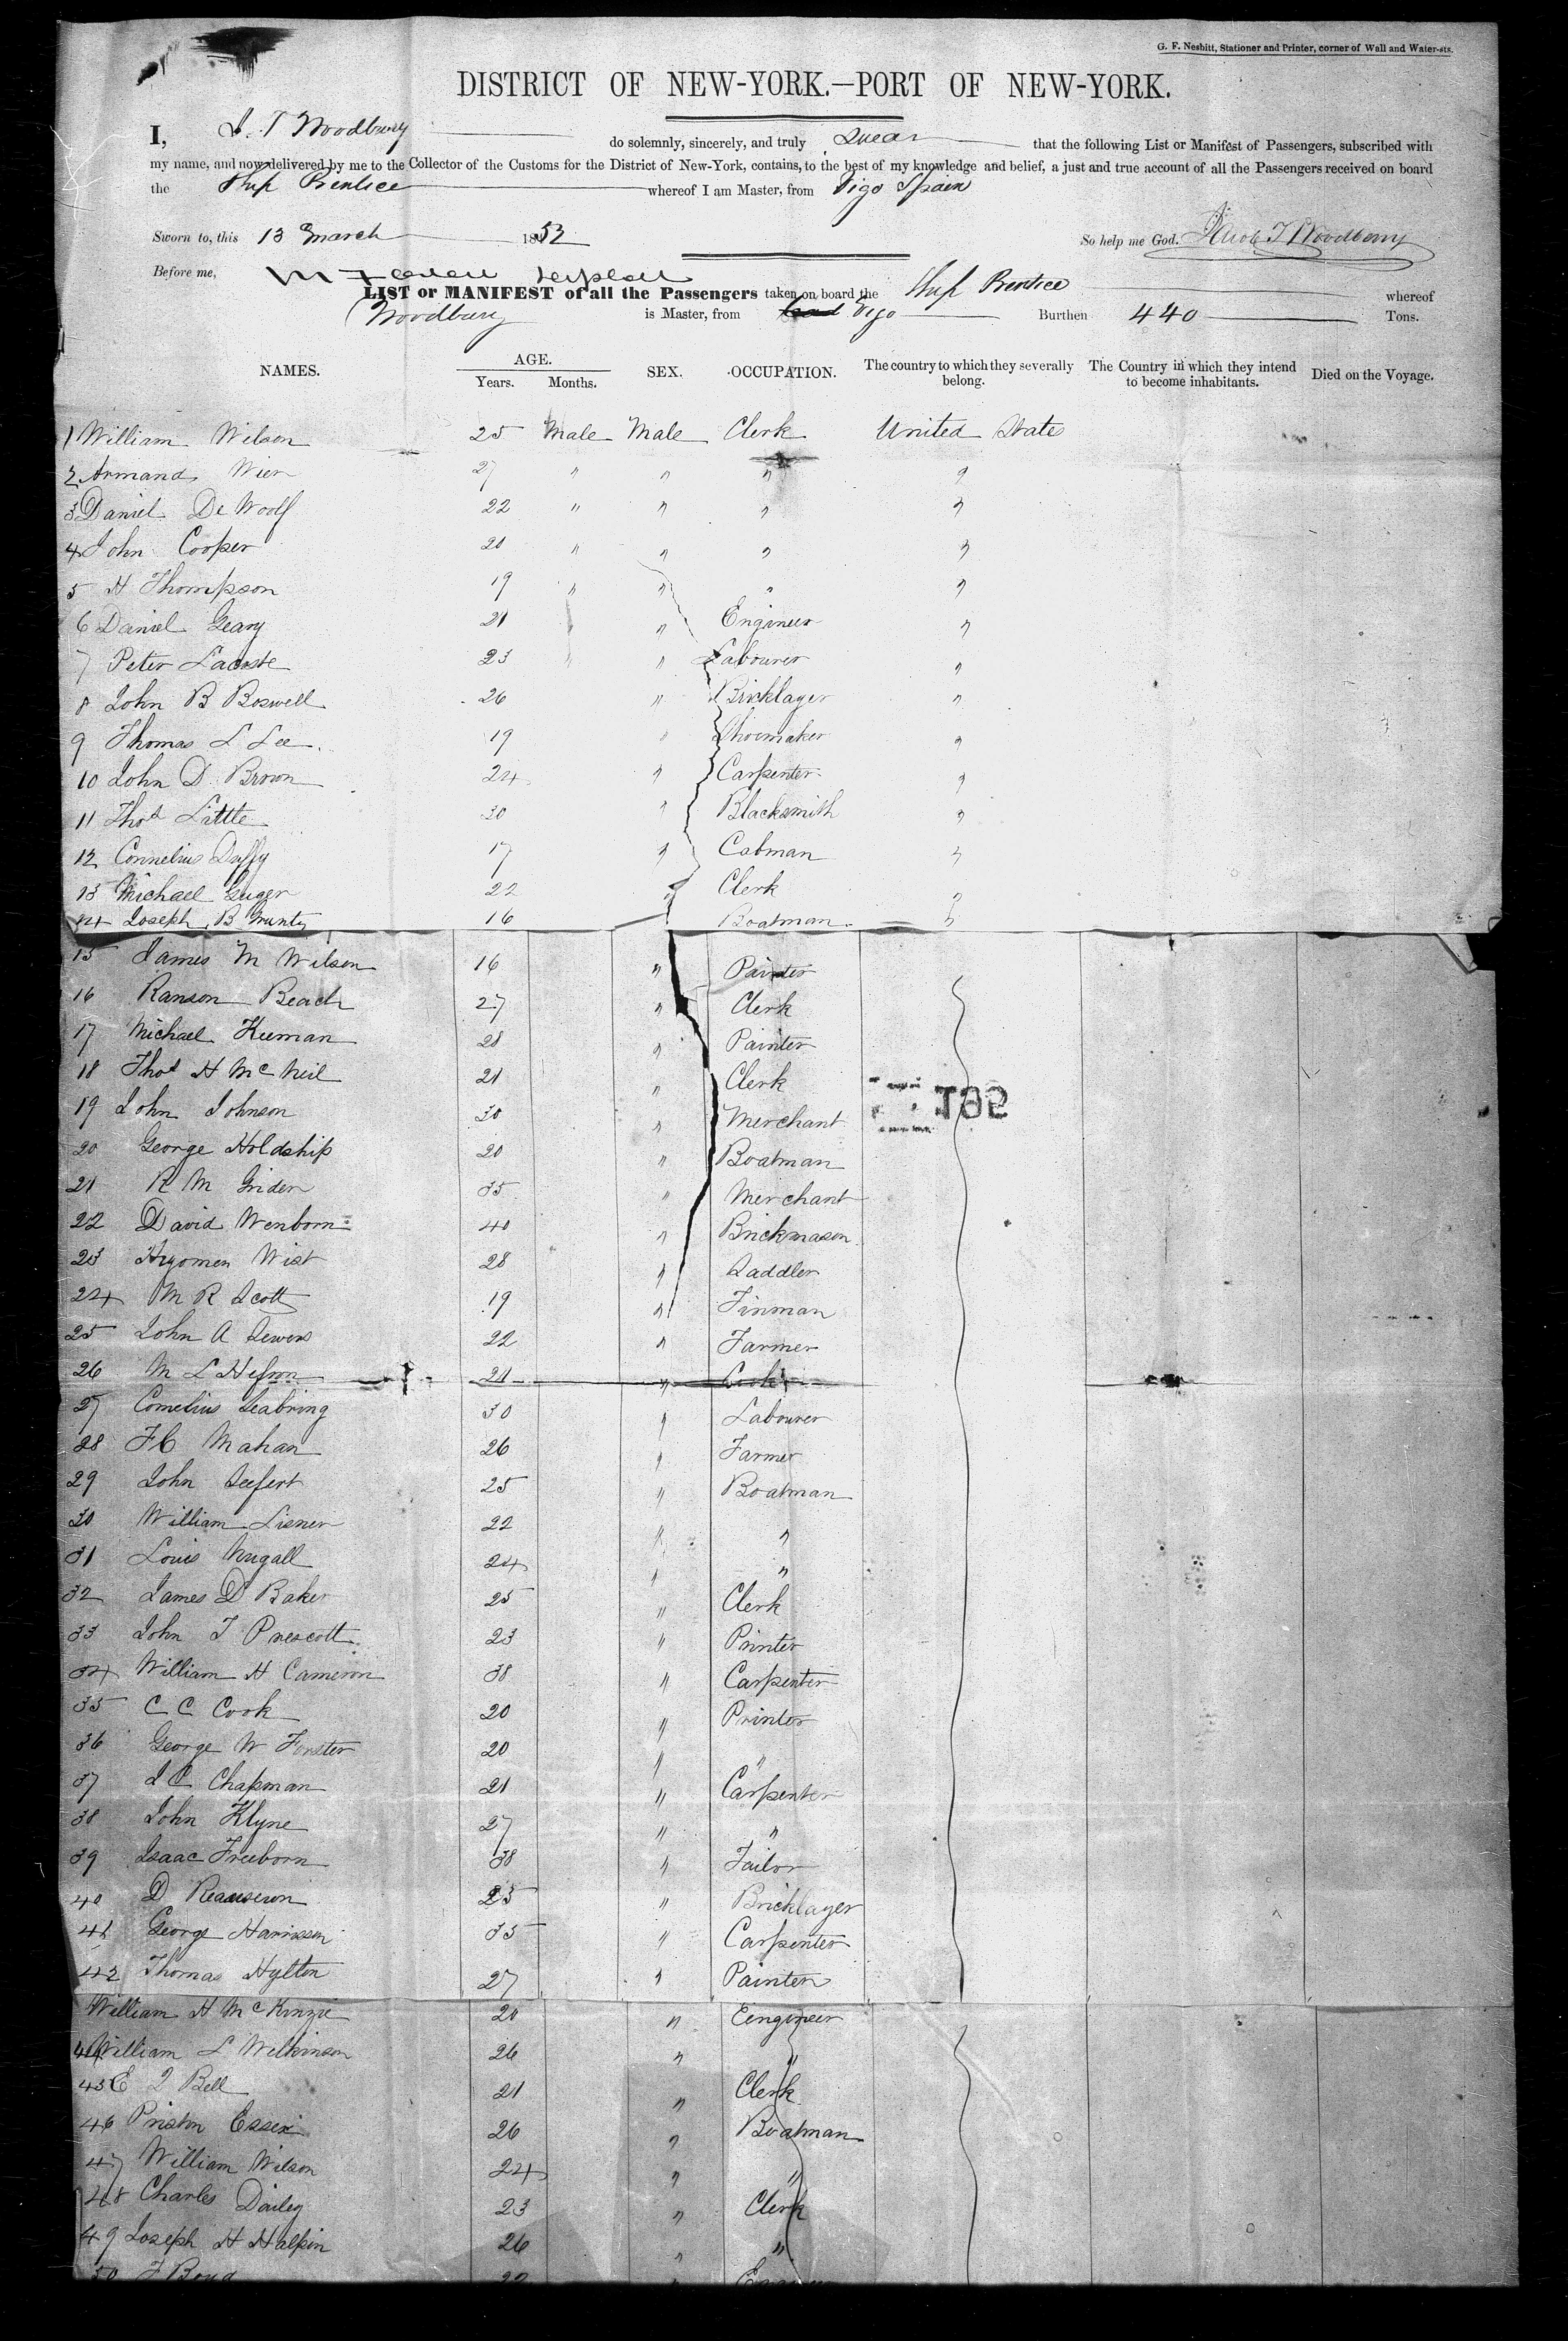 G. F. Nesbitt, Stationer and Printer, corner of Wall and Water-sts.
DISTRICT OF NEW-YORK.—PORT OF NEW-YORK.
I, J. T Woodbury do solemnly, sincerely, and truly Swear that the following List or Manifest of Passengers, subscribed with
my name, and now delivered by me to the Collector of the Customs for the District of New-York, contains, to the best of my knowledge and belief, a just and true account of all the Passengers received on board
the Ship Prentice whereof I am Master, from Vigo Spain
Sworn to, this 13 March 1852 So help me God. Jacob T Woodberry
Before me,
LIST or MANIFEST of all the Passengers taken on board the Ship Prentice whereof
Woodbury is Master, from Vigo Burthen 440 Tons.
NAMES. AGE. Years. Months. SEX. OCCUPATION. The country to which they severally belong. The Country in which they intend to become inhabitants. Died on the Voyage.
1 William Wilson 25 Male Male Clerk United State
2 Armand Wier 27 " " " "
3 Daniel De Woolf 22 " " " "
4 John Cooper 20 " " " "
5 H Thompson 19 " " " "
6 Daniel Geary 21 " Engineer "
7 Peter Lacoste 23 " " Labourer "
8 John B Boswell 26 " Bricklayer "
9 Thomas L Lee 19 " Shoemaker "
10 John D Brown 24 " Carpenter "
11 Thos Little 30 " Blacksmith "
12 Connelius Duffy 17 " Cabman "
13 Michael 22 " Clerk "
14 Joseph B 16 Boatman "
15 James M Wilson 16 " Painter
16 Ranson Beach 27 " Clerk
17 Michael Kieman 28 " Painter
18 Thos H McNeil 21 " Clerk
19 John Johnson 30 " Merchant
20 George Holdship 20 " Boatman
21 R M Grider 35 " Merchant
22 David Wenborn 40 " Brickmason
23 Hyomen Wist 28 " Saddler
24 M R Scott 19 " Tinman
25 John A Sewers 22 " Farmer
26 M L Hefron 21 " Cook
27 Cornelius Seabring 30 " Labourer
28 F C Mahan 26 " Farmer
29 John Seefert 25 " Boatman
30 William Lisner 22 " "
31 Louis Nugall 24 " "
32 James D Baker 25 " Clerk
33 John T Prescott 23 " Printer
34 William H Cameron 38 " Carpenter
35 C C Cook 20 " Printer
36 George W Forster 20 " "
37 J C Chapman 21 " Carpenter
38 John Klyne 27 " "
39 Isaac Freeborn 38 " Tailor
40 D 25 " Bricklayer
41 George Harrisson 35 " Carpenter
42 Thomas Hylton 27 " Painter
William H McKinzie 20 " Eengineer
44 William L Wilkinson 26 " "
45 E Q Bell 21 " Clerk
46 Priston Essex 26 " Boatman
47 William Wilson 24 " "
48 Charles Dailey 23 " Clerk
49 Joseph H Halpin 26 " "
50